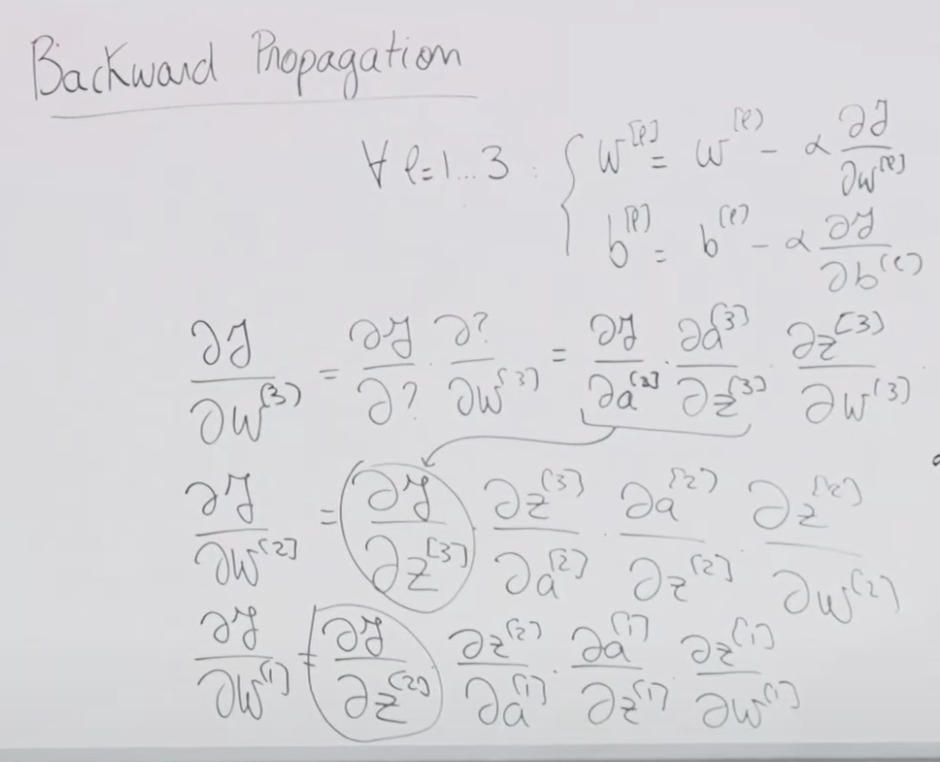 Backward Propagation
∀ l=1...3 : { w^[l] = w^[l] − α ∂J/∂w^[l]
b^[l] = b^[l] − α ∂J/∂b^[l]
∂J/∂w^[3] = ∂J/∂? · ∂?/∂w^[3] = ∂J/∂a^[3] · ∂a^[3]/∂z^[3] · ∂z^[3]/∂w^[3]
∂J/∂w^[2] = ∂J/∂z^[3] · ∂z^[3]/∂a^[2] · ∂a^[2]/∂z^[2] · ∂z^[2]/∂w^[2]
∂J/∂w^[1] = ∂J/∂z^[2] · ∂z^[2]/∂a^[1] · ∂a^[1]/∂z^[1] · ∂z^[1]/∂w^[1]